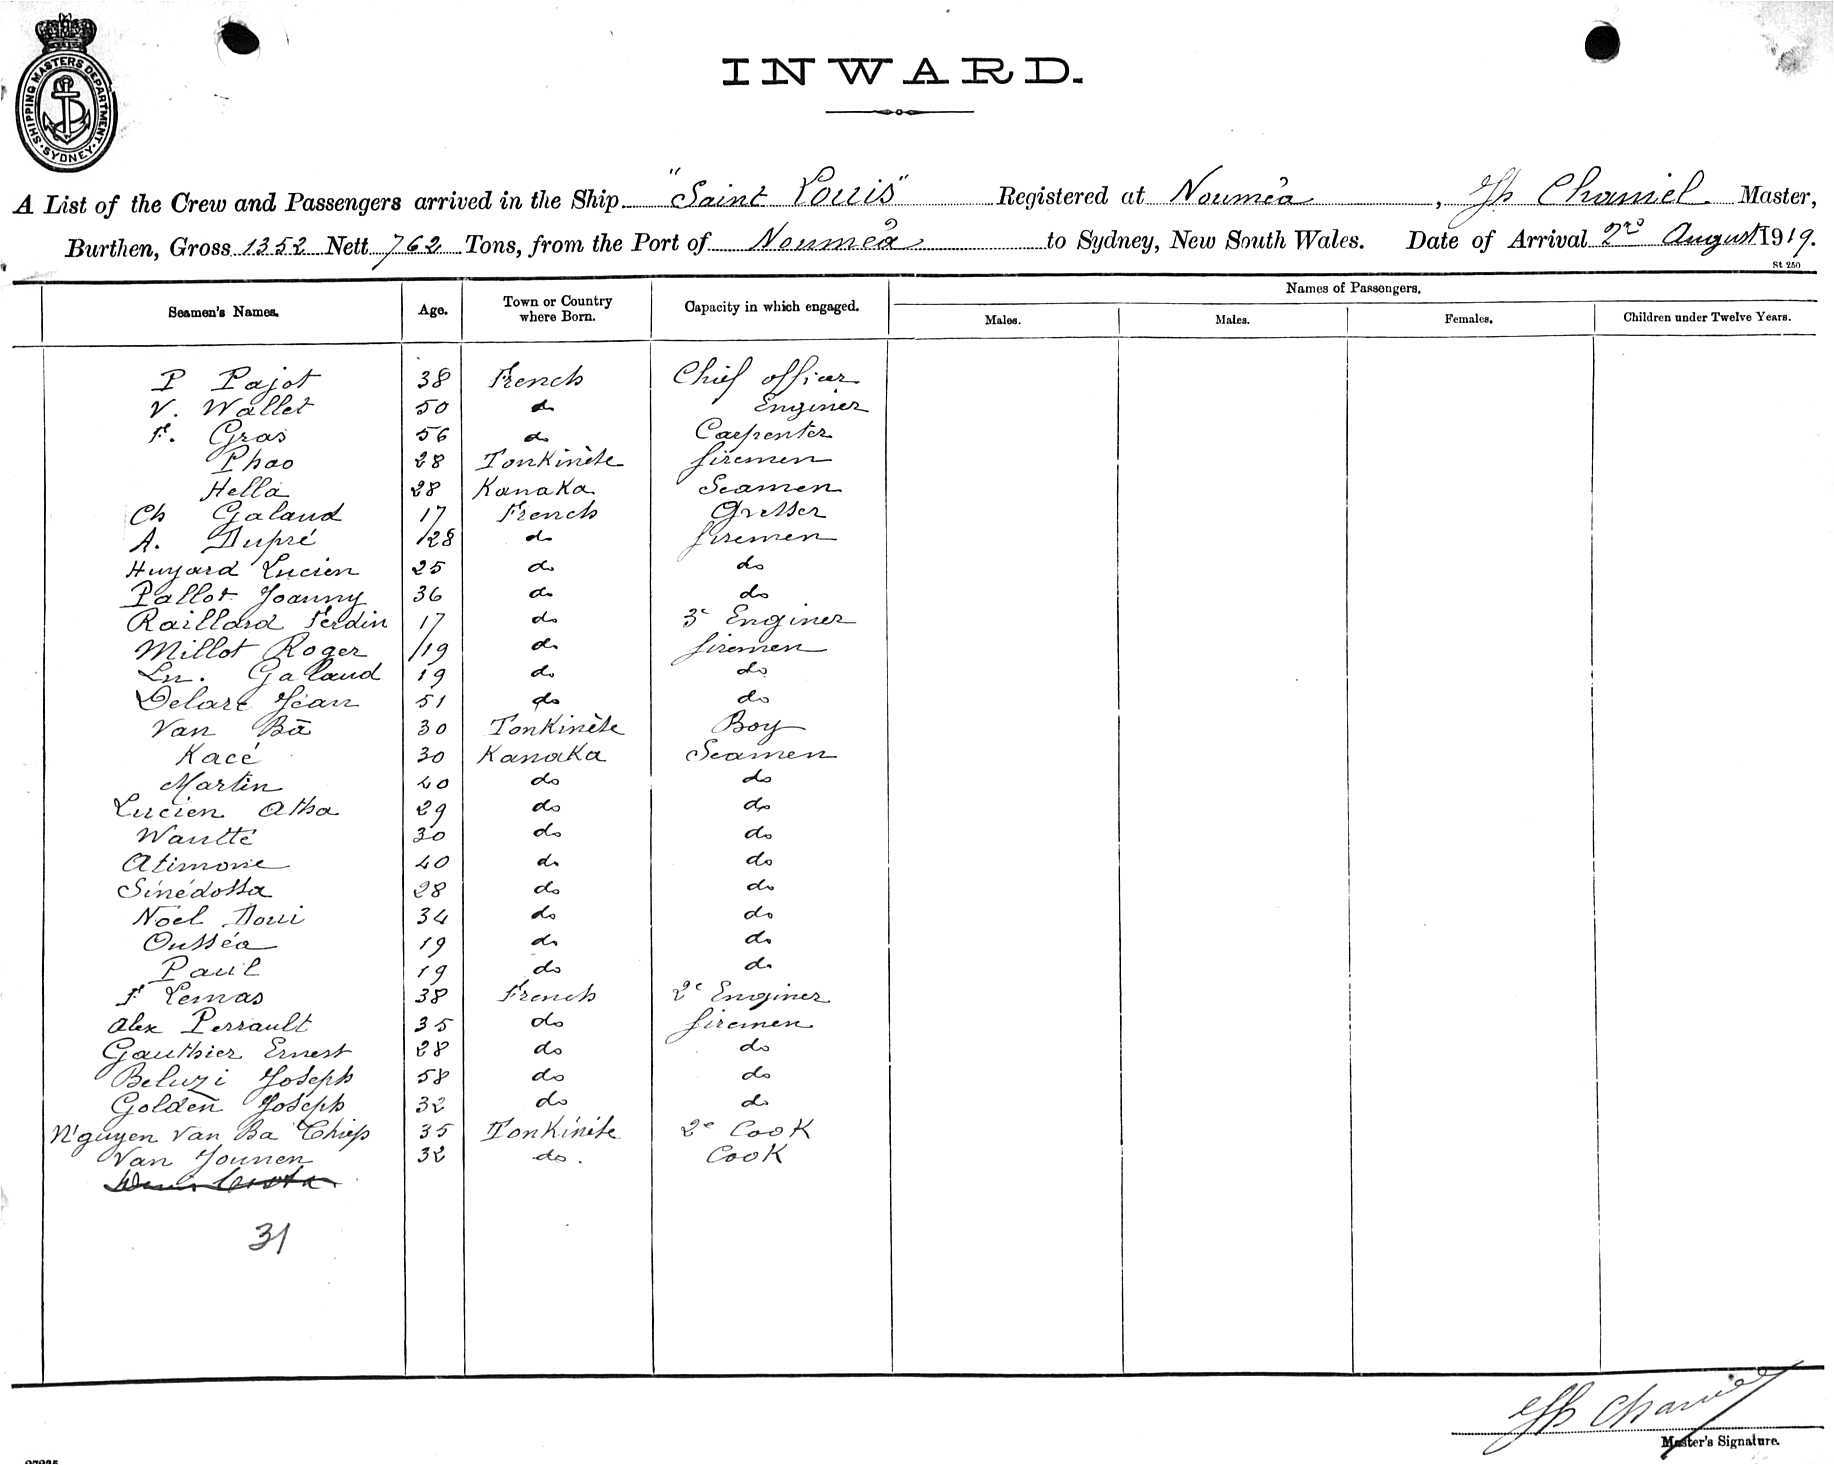 SHIPPING MASTERS DEPARTMENT · SYDNEY ·
INWARD.
A List of the Crew and Passengers arrived in the Ship "Saint Louis" Registered at Nouméa, Chaniel Master,
Burthen, Gross 1352 Nett 762 Tons, from the Port of Nouméa to Sydney, New South Wales. Date of Arrival 2nd August 1919.
St 250
Seamen's Names. Age. Town or Country where Born. Capacity in which engaged. Names of Passengers.
Males. Males. Females. Children under Twelve Years.
P Pajot 38 French Chief officer
V. Wallet 50 do Enginer
F. Gras 56 do Carpenter
Phao 28 Tonkinèse firemen
Hella 28 Kanaka Seamen
Ch Galaud 17 French Gresser
A. Dupré 28 do firemen
Huyard Lucien 25 do do
Pallot Joanny 36 do do
Raillard Ferdin 17 do 3e Enginer
Millot Roger 19 do firemen
Ln. Galaud 19 do do
Delare Jean 51 do do
Van Bā 30 Tonkinèse Boy
Kacé 30 Kanaka Seamen
Martin 40 do do
Lucien Atha 29 do do
Wautté 30 do do
Atimone 40 do do
Sinédossa 28 do do
Noël Doui 34 do do
Ousséa 19 do do
Paul 19 do do
F Lemas 38 French 2e Enginer
Alex Perrault 35 do firemen
Gauthier Ernest 28 do do
Beluzi Joseph 58 do do
Golden Joseph 32 do do
N'guyen Van Ba Chiep 35 Tonkinèse 2e Cook
Van Jounen 32 do. Cook
31
Chaniel
Master's Signature.